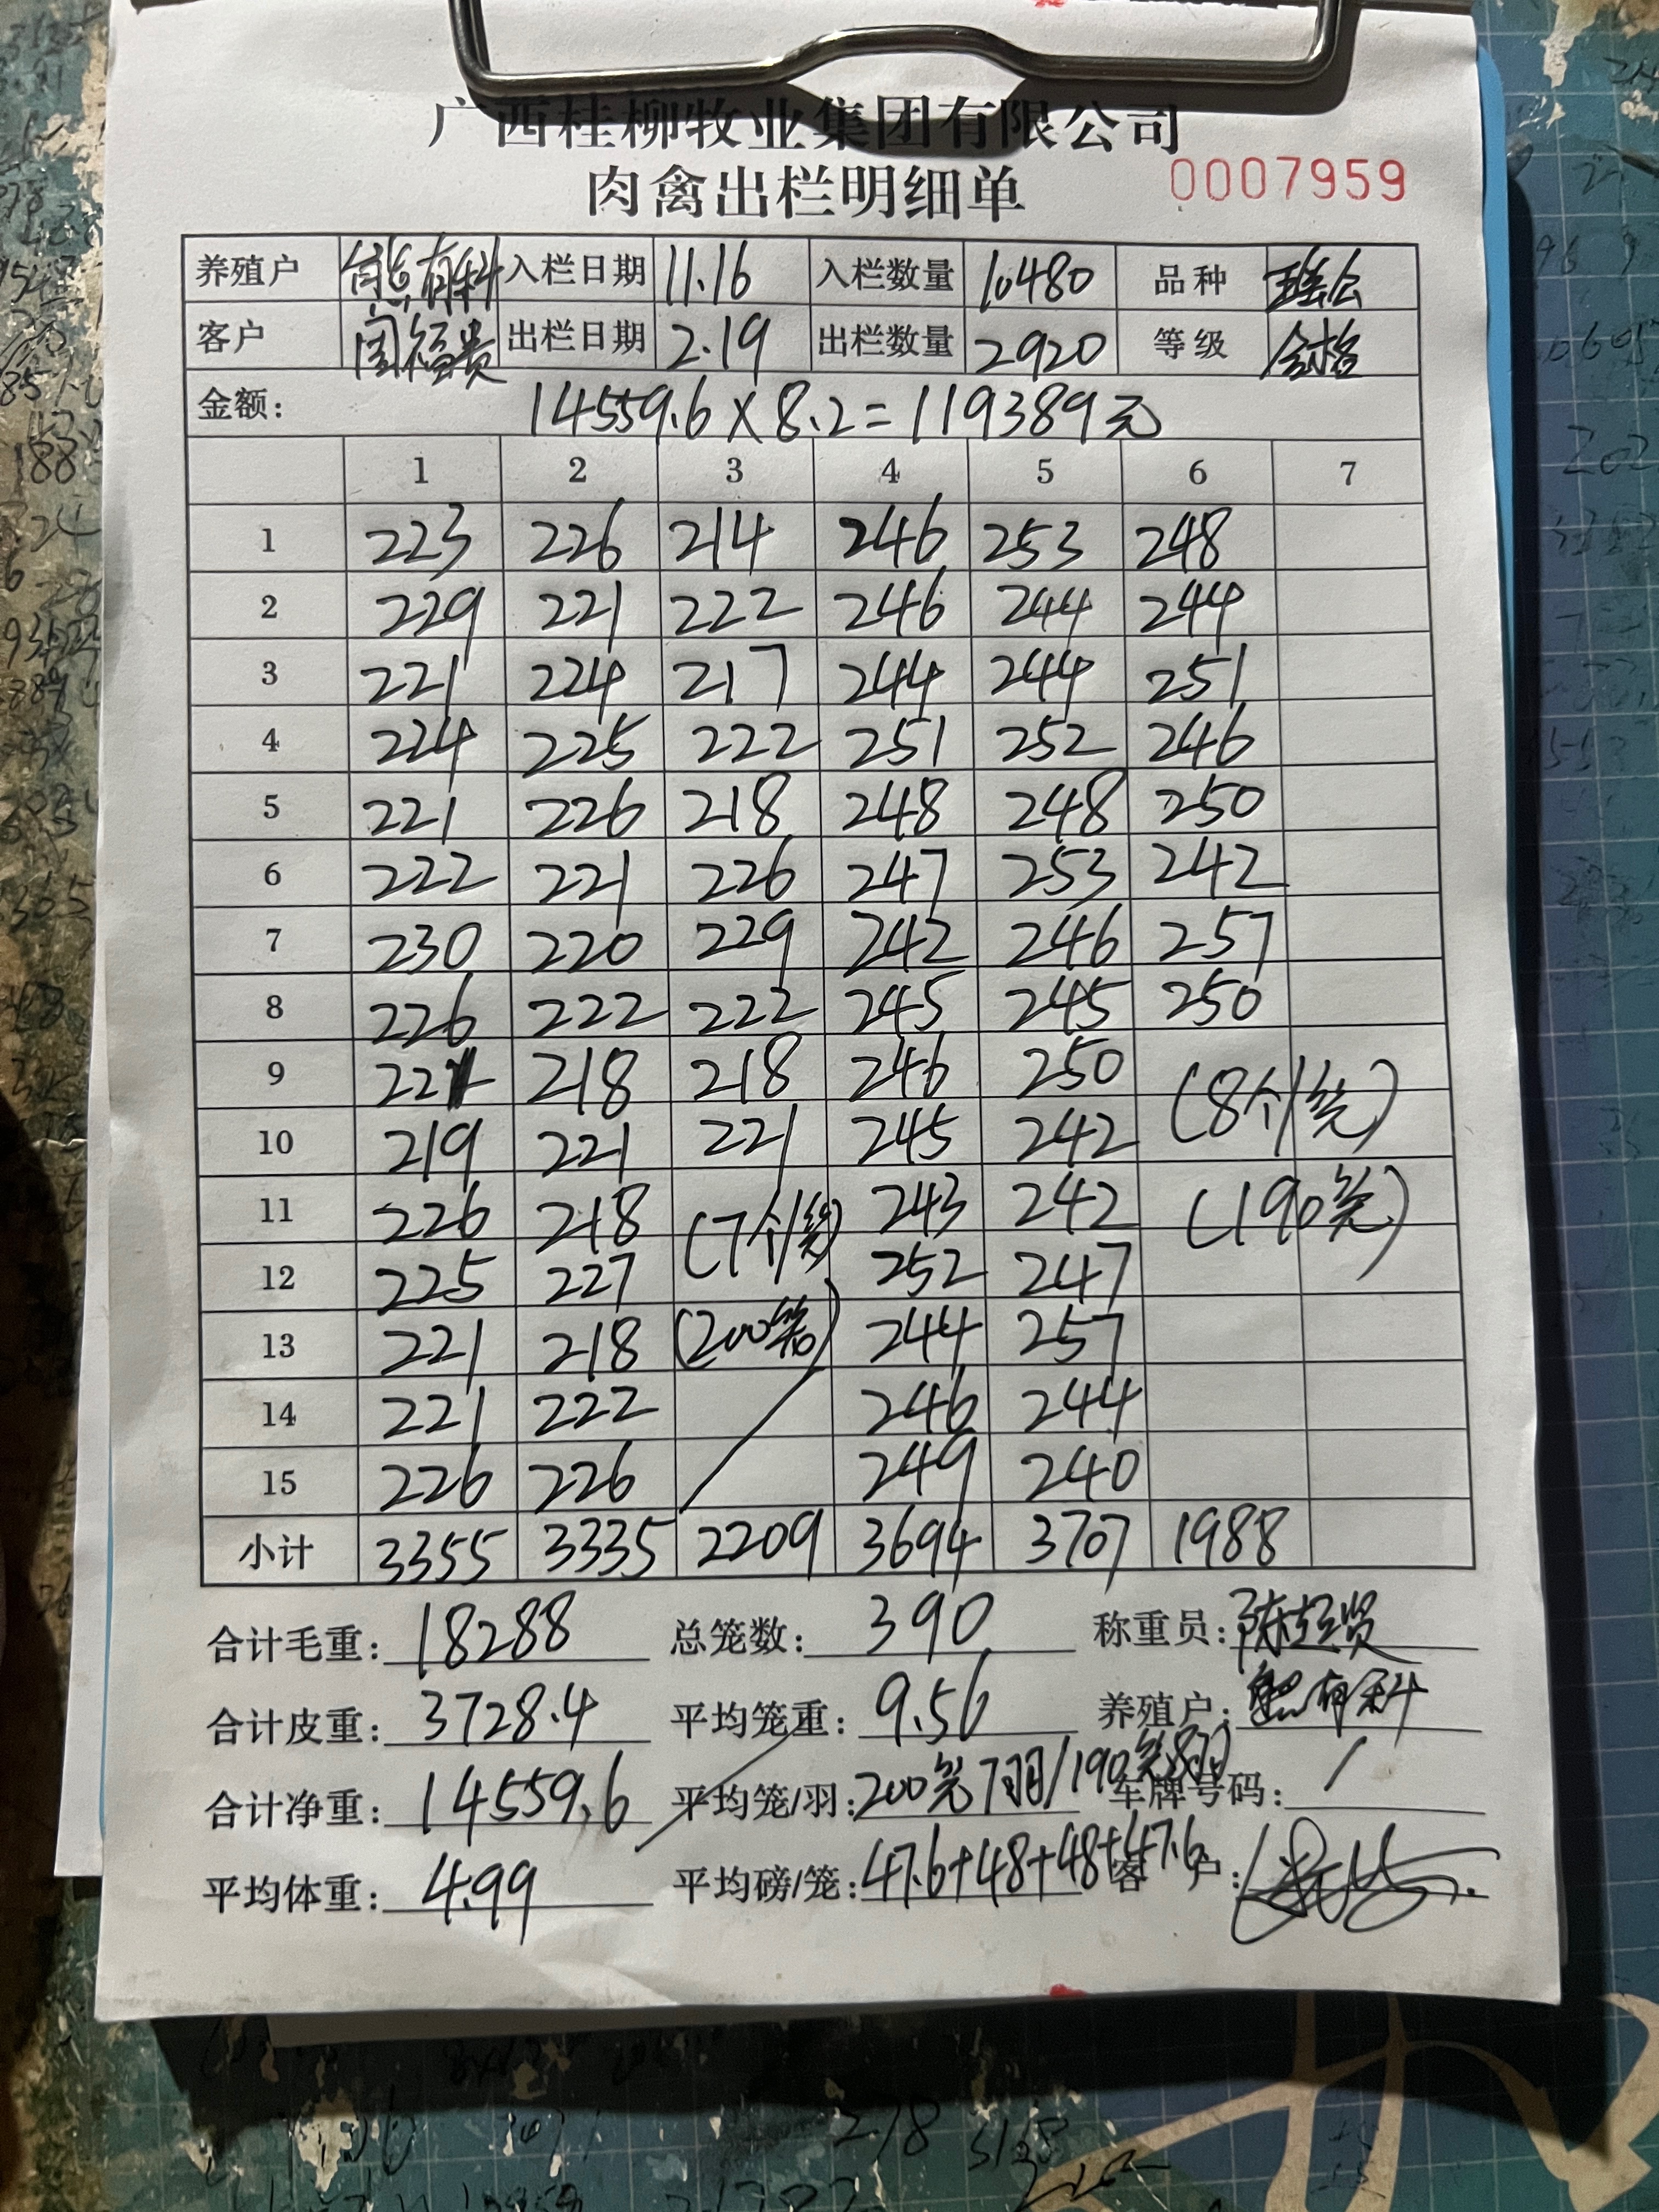 广西桂柳牧业集团有限公司
肉禽出栏明细单 0007959
养殖户 熊有科 入栏日期 11.16 入栏数量 10480 品种 瑶公
客户 闭福贵 出栏日期 2.19 出栏数量 2920 等级 合格
金额: 14559.6×8.2=119389元
1 2 3 4 5 6 7
1 223 226 214 246 253 248
2 229 221 222 246 244 244
3 221 224 217 244 244 251
4 224 225 222 251 252 246
5 221 226 218 248 248 250
6 222 221 226 247 253 242
7 230 220 229 242 246 257
8 226 222 222 245 245 250
9 221 218 218 246 250
10 219 221 221 245 242 (8个/笼)
11 226 218 (7个/笼) 243 242 (190笼)
12 225 227 252 247
13 221 218 (200笼) 244 257
14 221 222 246 244
15 226 226 249 240
小计 3355 3335 2209 3694 3707 1988
合计毛重: 18288 总笼数: 390 称重员: 陈
合计皮重: 3728.4 平均笼重: 9.56 养殖户: 熊有科
合计净重: 14559.6 平均笼/羽: 200笼7羽/190笼8羽 车牌号码: /
平均体重: 4.99 平均磅/笼: 47.6+48+48+47.6 客户: